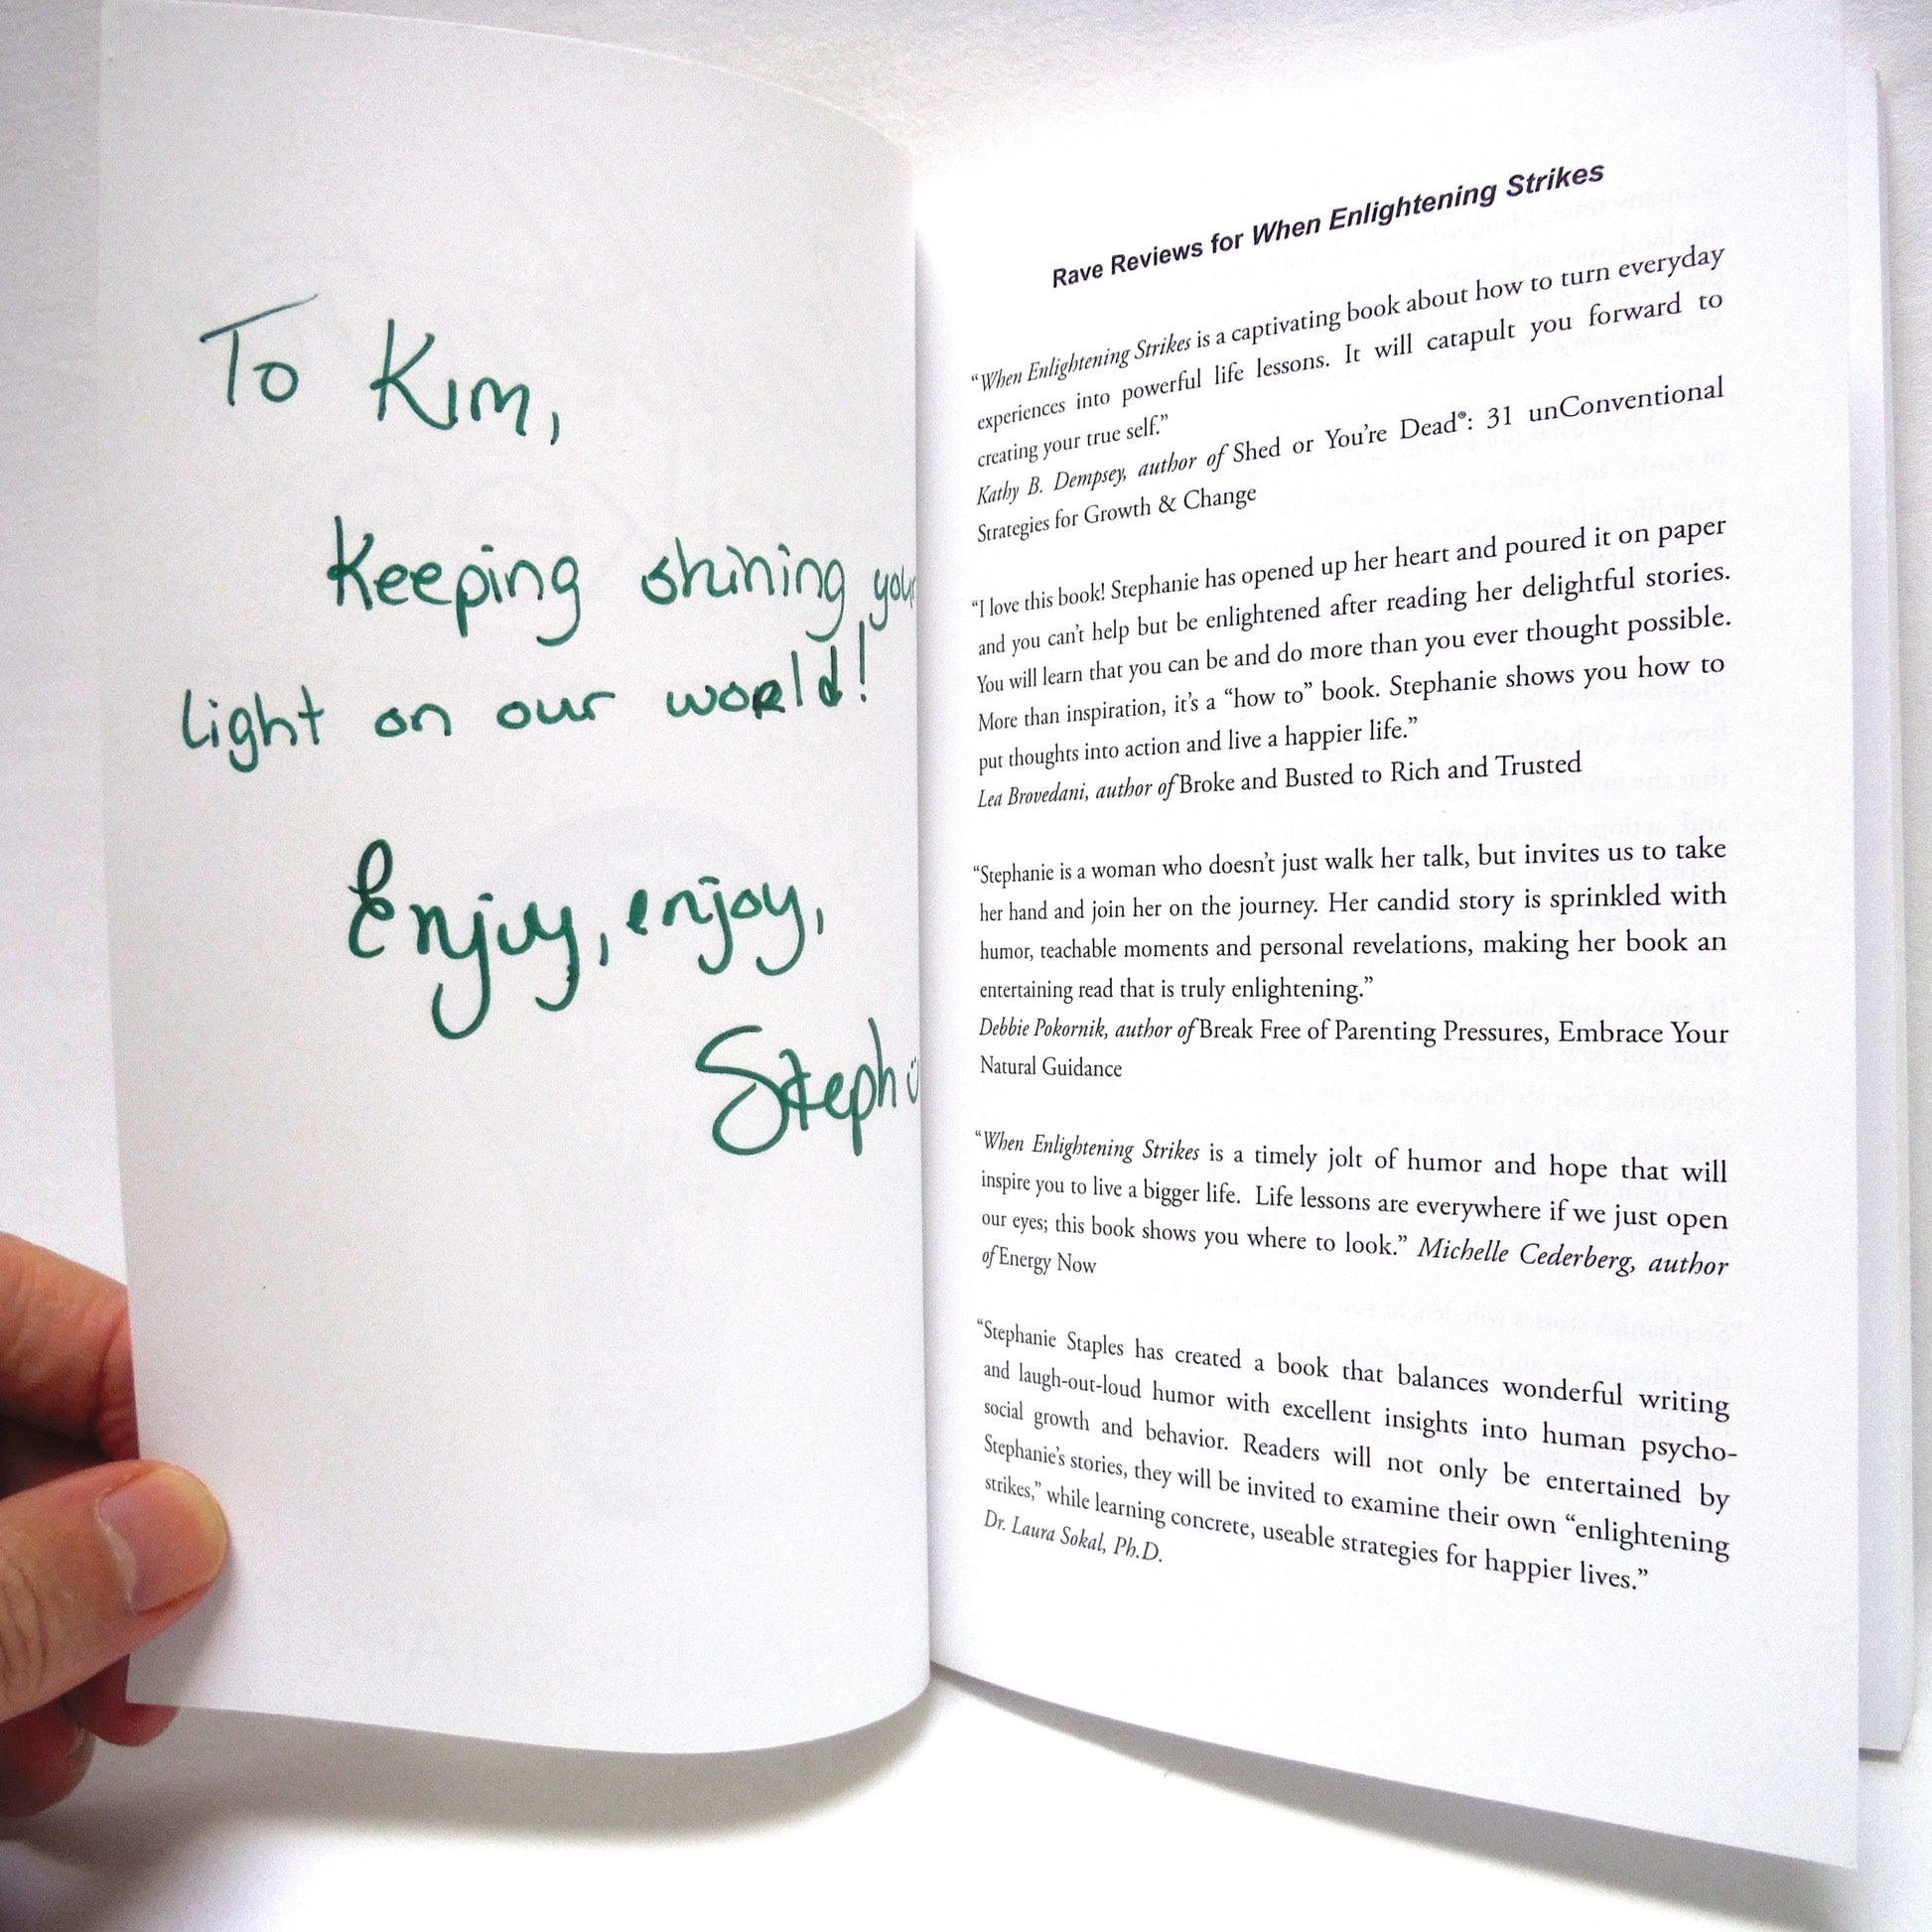 To Kim,
Keeping shining your
light on our world!
Enjoy, enjoy,
Steph
Rave Reviews for When Enlightening Strikes
“When Enlightening Strikes is a captivating book about how to turn everyday
experiences into powerful life lessons. It will catapult you forward to
creating your true self.”
Kathy B. Dempsey, author of Shed or You’re Dead®: 31 unConventional
Strategies for Growth & Change
“I love this book! Stephanie has opened up her heart and poured it on paper
and you can’t help but be enlightened after reading her delightful stories.
You will learn that you can be and do more than you ever thought possible.
More than inspiration, it’s a “how to” book. Stephanie shows you how to
put thoughts into action and live a happier life.”
Lea Brovedani, author of Broke and Busted to Rich and Trusted
“Stephanie is a woman who doesn’t just walk her talk, but invites us to take
her hand and join her on the journey. Her candid story is sprinkled with
humor, teachable moments and personal revelations, making her book an
entertaining read that is truly enlightening.”
Debbie Pokornik, author of Break Free of Parenting Pressures, Embrace Your
Natural Guidance
“When Enlightening Strikes is a timely jolt of humor and hope that will
inspire you to live a bigger life. Life lessons are everywhere if we just open
our eyes; this book shows you where to look.” Michelle Cederberg, author
of Energy Now
“Stephanie Staples has created a book that balances wonderful writing
and laugh-out-loud humor with excellent insights into human psycho-
social growth and behavior. Readers will not only be entertained by
Stephanie’s stories, they will be invited to examine their own “enlightening
strikes,” while learning concrete, useable strategies for happier lives.”
Dr. Laura Sokal, Ph.D.